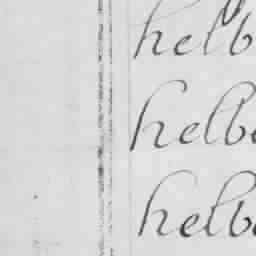 helb
helbe
helbe